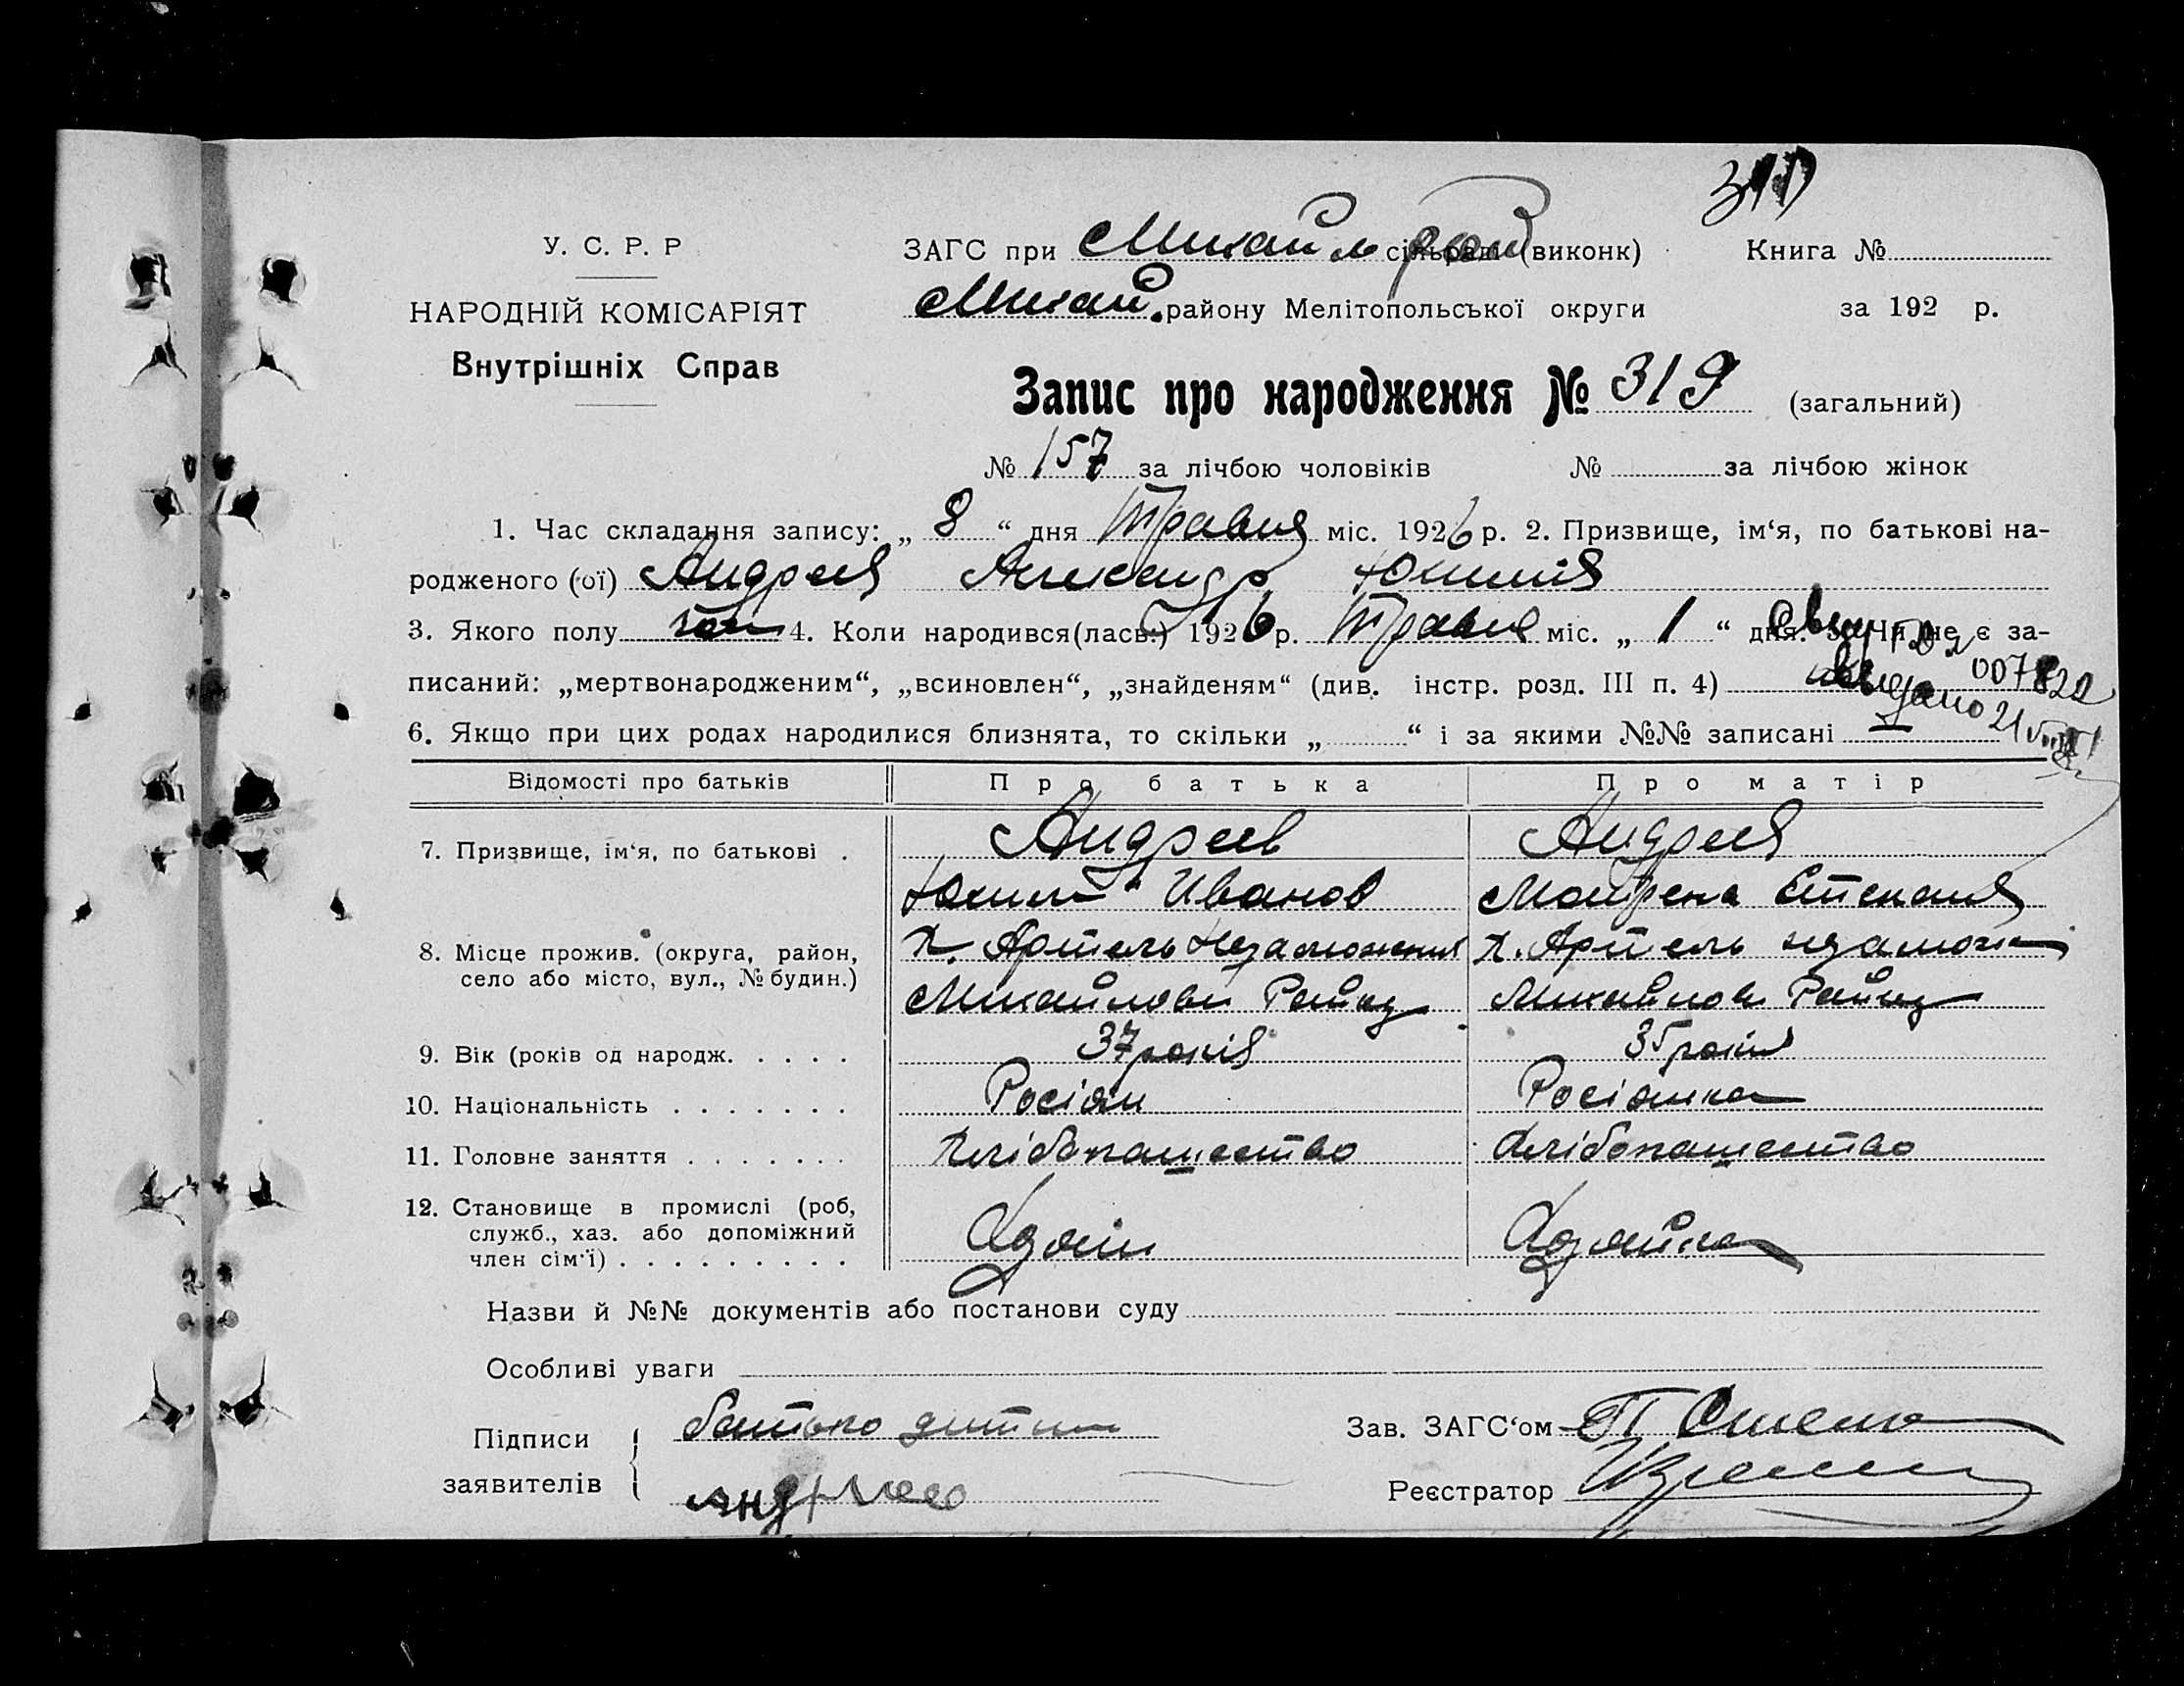 У. С. Р. Р
НАРОДНІЙ КОМІСАРІЯТ
Внутрішніх Справ
ЗАГС при Михайл сільраді (виконк)
Книга №
Михай. району Мелітопольської округи
за 192 р.
Запис про народження № 319 (загальний)
№ 157 за лічбою чоловіків № за лічбою жінок
1. Час складання запису: „ 8 “ дня Травня міс. 1926 р. 2. Призвище, ім‘я, по батькові на-
родженого (ої) Андреев Александр
3. Якого полу чол 4. Коли народився(лась:) 1926 р. Травня міс. „ 1 “ дня. 5. Чи не є за-
писаний: „мертвонародженим“, „всиновлен“, „знайденям“ (див. інстр. розд. III п. 4)
видано 21
6. Якщо при цих родах народилися близнята, то скільки „ “ і за якими №№ записані —
Відомості про батьків Про батька Про матір
7. Призвище, ім‘я, по батькові . Андреев Андреев
Иванов Мотрена Степанов
8. Місце прожив. (округа, район, х. Артель Незаможник х. Артель незаможн
село або місто, вул., № будин.) Михайлов Району Михайлов Району
9. Вік (років од народж. . . . . 37 років 35 років
10. Національність . . . . . . . Росіян Росіянка
11. Головне заняття . . . . . . . Хлібопашество Хлібопашество
12. Становище в промислі (роб,
служб., хаз. або допоміжний Хазяин Хазяйка
член сім‘ї) . . . . . . . . .
Назви й №№ документів або постанови суду
Особливі уваги
Підписи батько дитини
заявителів Андреев
Зав. ЗАГС‘ом
Реєстратор